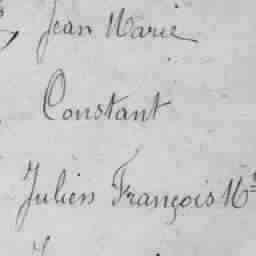 Jean Marie
Constant
Julien François M